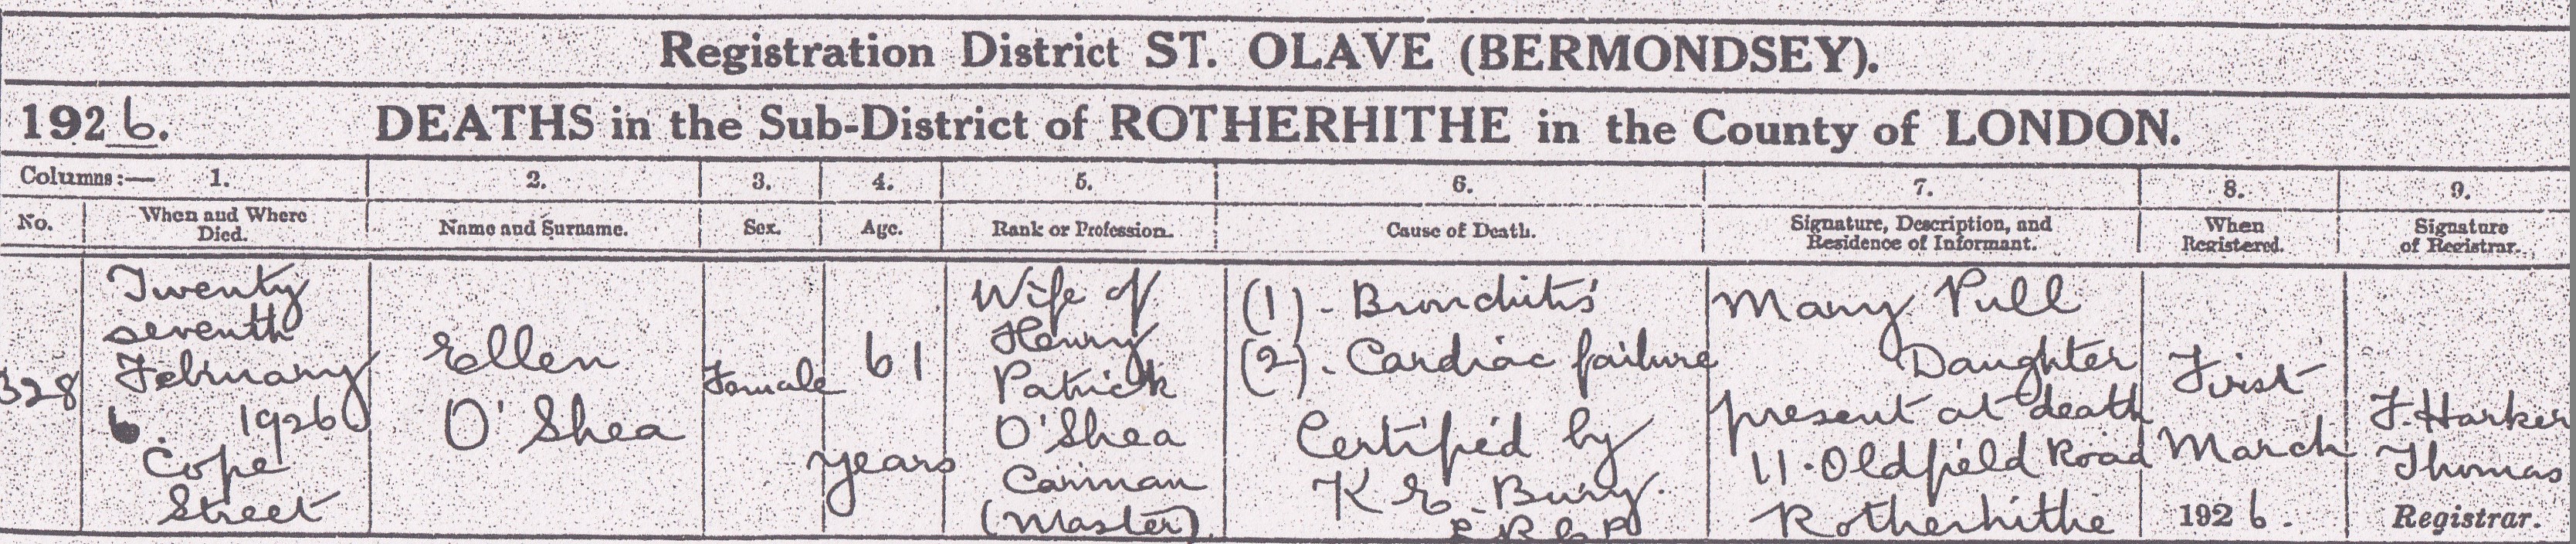 Registration District ST. OLAVE (BERMONDSEY).
1926. DEATHS in the Sub-District of ROTHERHITHE in the County of LONDON.
Columns:— 1. 2. 3. 4. 5. 6. 7. 8. 9.
No. When and Where Died. Name and Surname. Sex. Age. Rank or Profession. Cause of Death. Signature, Description, and Residence of Informant. When Registered. Signature of Registrar.
328
Twenty
seventh
February
1926
6.
Cope
Street
Ellen
O'Shea
Female
61
years
Wife of
Henry
Patrick
O'Shea
Carman
(Master)
(1). Bronchitis
(2). Cardiac failure
Certified by
K E Bury.
Mary Pull
Daughter
present at death
11. Oldfield Road
Rotherhithe
First
March
1926.
J. Harker
Thomas
Registrar.